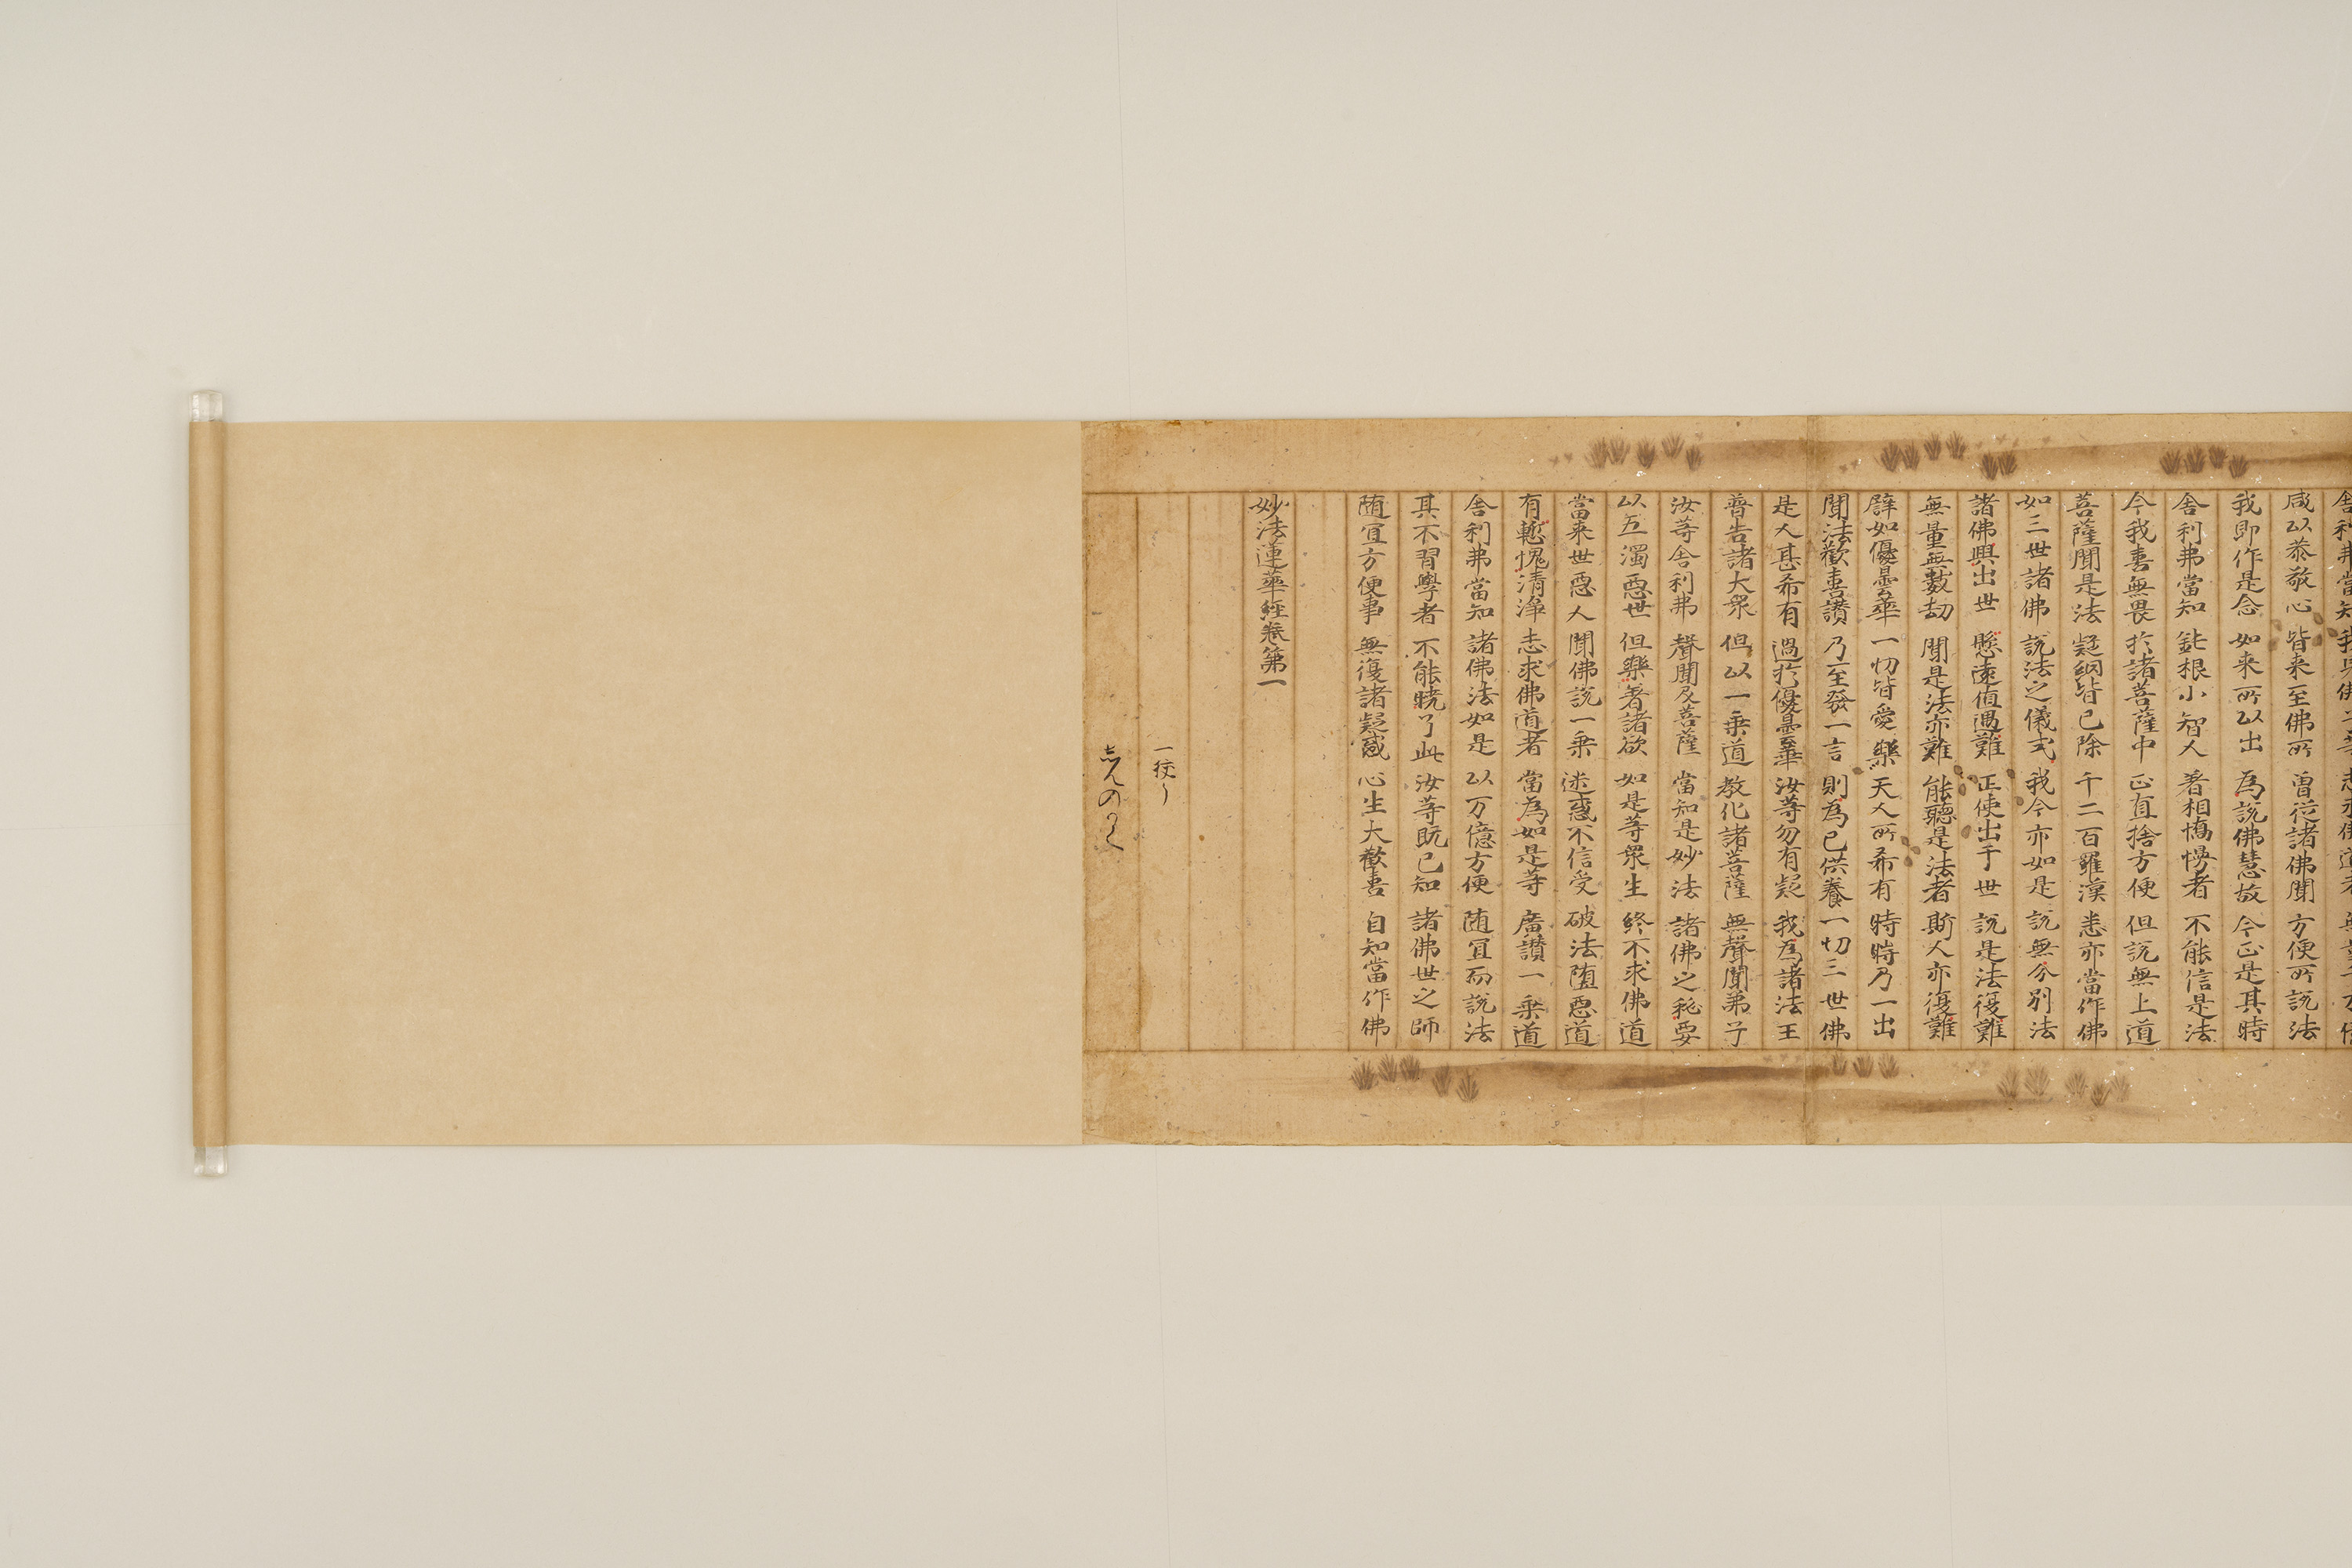 舎利弗當知 我見佛子等 志求佛道者 無量千万億
咸以恭敬心 皆来至佛所 曽従諸佛聞 方便所説法
我即作是念 如来所以出 為説佛慧故 今正是其時
舎利弗當知 鈍根小智人 著相憍慢者 不能信是法
今我喜無畏 於諸菩薩中 正直捨方便 但説無上道
菩薩聞是法 疑網皆已除 千二百羅漢 悉亦當作佛
如三世諸佛 説法之儀式 我今亦如是 説無分別法
諸佛興出世 懸遠值遇難 正使出于世 説是法復難
無量無數劫 聞是法亦難 能聽是法者 斯人亦復難
譬如優曇華 一切皆愛樂 天人所希有 時時乃一出
聞法歡喜讃 乃至發一言 則為已供養 一切三世佛
是人甚希有 過於優曇華 汝等勿有疑 我為諸法王
普告諸大衆 但以一乗道 教化諸菩薩 無聲聞弟子
汝等舎利弗 聲聞及菩薩 當知是妙法 諸佛之秘要
以五濁惡世 但樂著諸欲 如是等衆生 終不求佛道
當来世惡人 聞佛説一乗 迷惑不信受 破法堕惡道
有慙愧清淨 志求佛道者 當為如是等 廣讃一乗道
舎利弗當知 諸佛法如是 以万億方便 随宜而説法
其不習學者 不能暁了此 汝等既已知 諸佛世之師
随宜方便事 無復諸疑惑 心生大歡喜 自知當作佛
妙法蓮華經卷第一
一校了